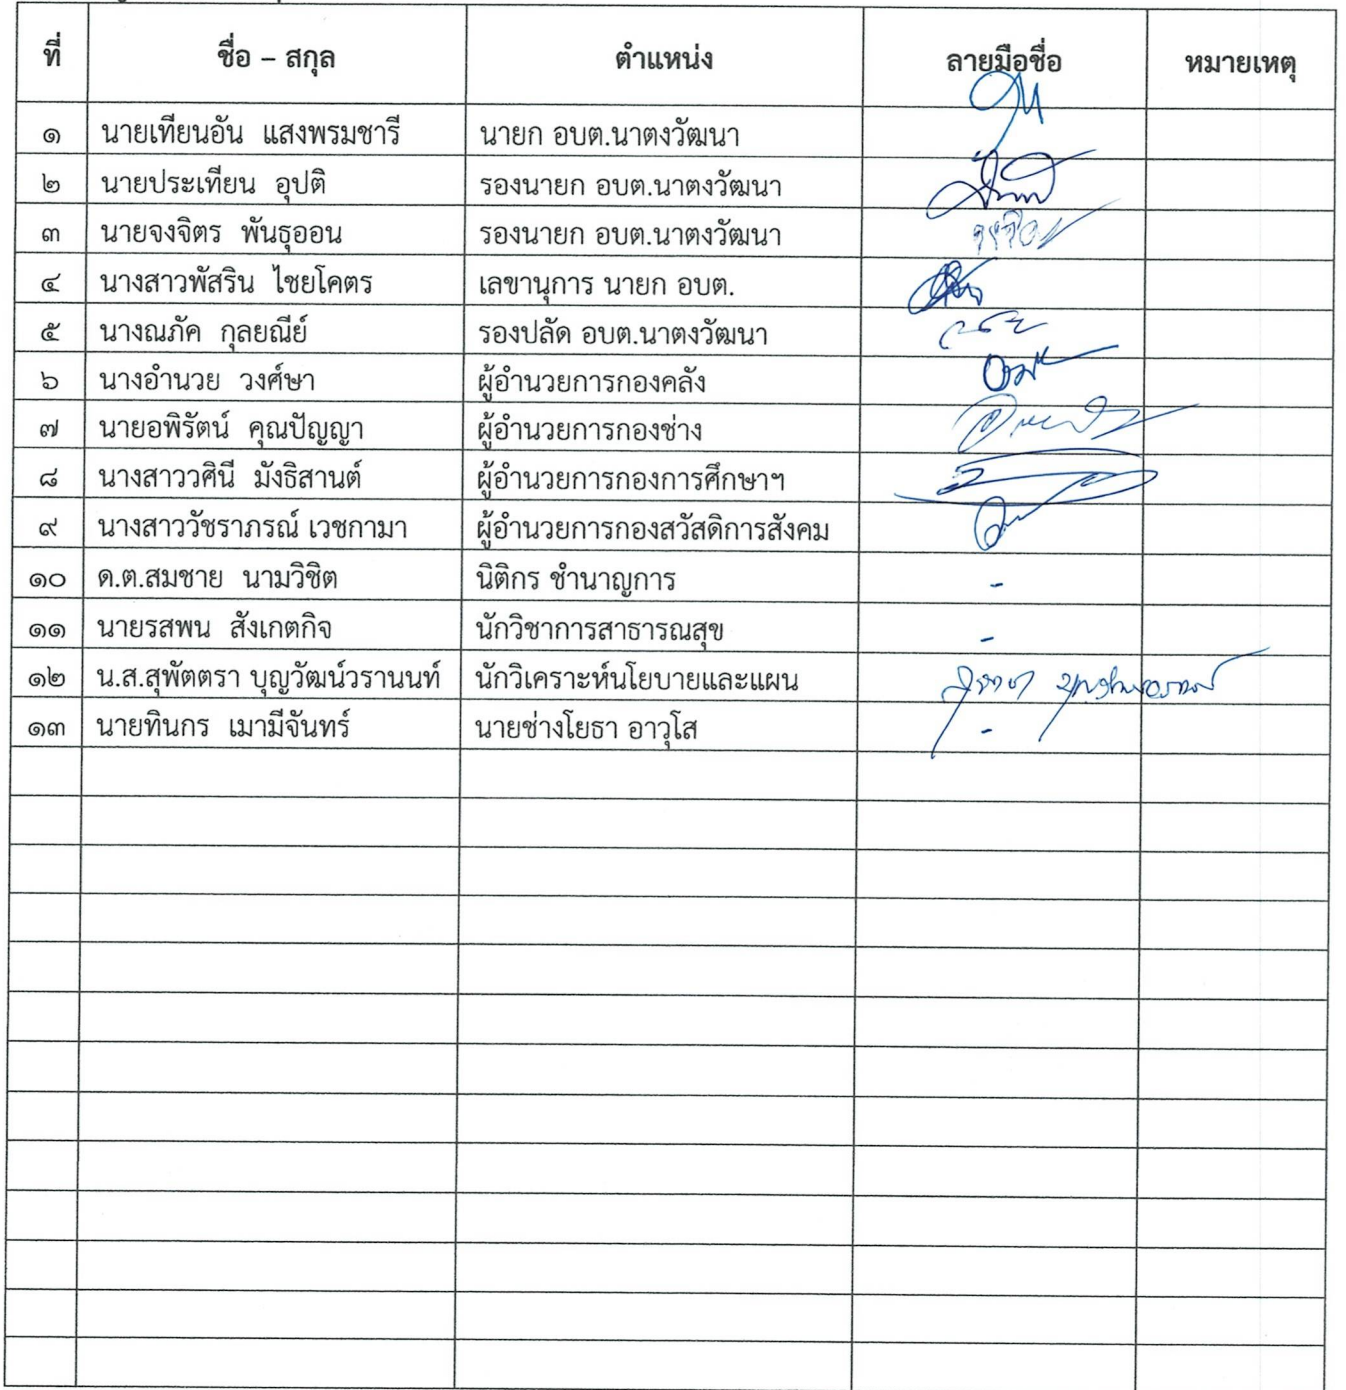 ที่ ชื่อ – สกุล ตำแหน่ง ลายมือชื่อ หมายเหตุ
๑ นายเทียนอัน แสงพรมชารี นายก อบต.นาตงวัฒนา
๒ นายประเทียน อุปติ รองนายก อบต.นาตงวัฒนา
๓ นายจงจิตร พันธุออน รองนายก อบต.นาตงวัฒนา
๔ นางสาวพัสริน ไชยโคตร เลขานุการ นายก อบต.
๕ นางณภัค กุลยณีย์ รองปลัด อบต.นาตงวัฒนา
๖ นางอำนวย วงศ์ษา ผู้อำนวยการกองคลัง
๗ นายอพิรัตน์ คุณปัญญา ผู้อำนวยการกองช่าง
๘ นางสาววศินี มังธิสานต์ ผู้อำนวยการกองการศึกษาฯ
๙ นางสาววัชราภรณ์ เวชกามา ผู้อำนวยการกองสวัสดิการสังคม
๑๐ ด.ต.สมชาย นามวิชิต นิติกร ชำนาญการ -
๑๑ นายรสพน สังเกตกิจ นักวิชาการสาธารณสุข -
๑๒ น.ส.สุพัตตรา บุญวัฒน์วรานนท์ นักวิเคราะห์นโยบายและแผน
๑๓ นายทินกร เมามีจันทร์ นายช่างโยธา อาวุโส -